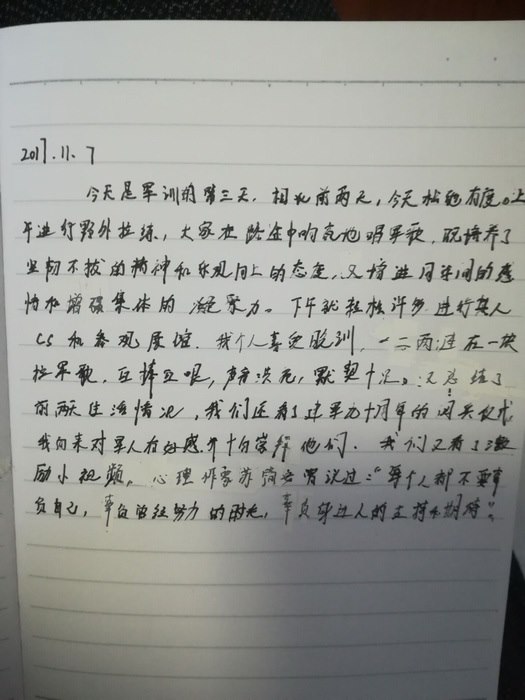 2017.11.7
今天是军训的第三天，相比前两天，今天松弛有度。上
午进行野外拉练，大家在路途中响亮地唱军歌，既培养了
坚韧不拔的精神和乐观向上的态度，又增进同学间的感
情和增强集体的凝聚力。下午就轻松许多，进行真人
CS和参观展馆。我个人喜爱脱训，一二两连在一块
拉军歌，互捧互哏，声音洪亮，默契十足。又总结了
前两天生活情况，我们还看了建军九十周年的阅兵仪式
我向来对军人有好感并十分崇拜他们。我们又看了激
励小视频。心理作家苏岑曾说过：“每个人都不要辜
负自己，辜负曾经努力的时光，辜负身边人的支持和期待”。